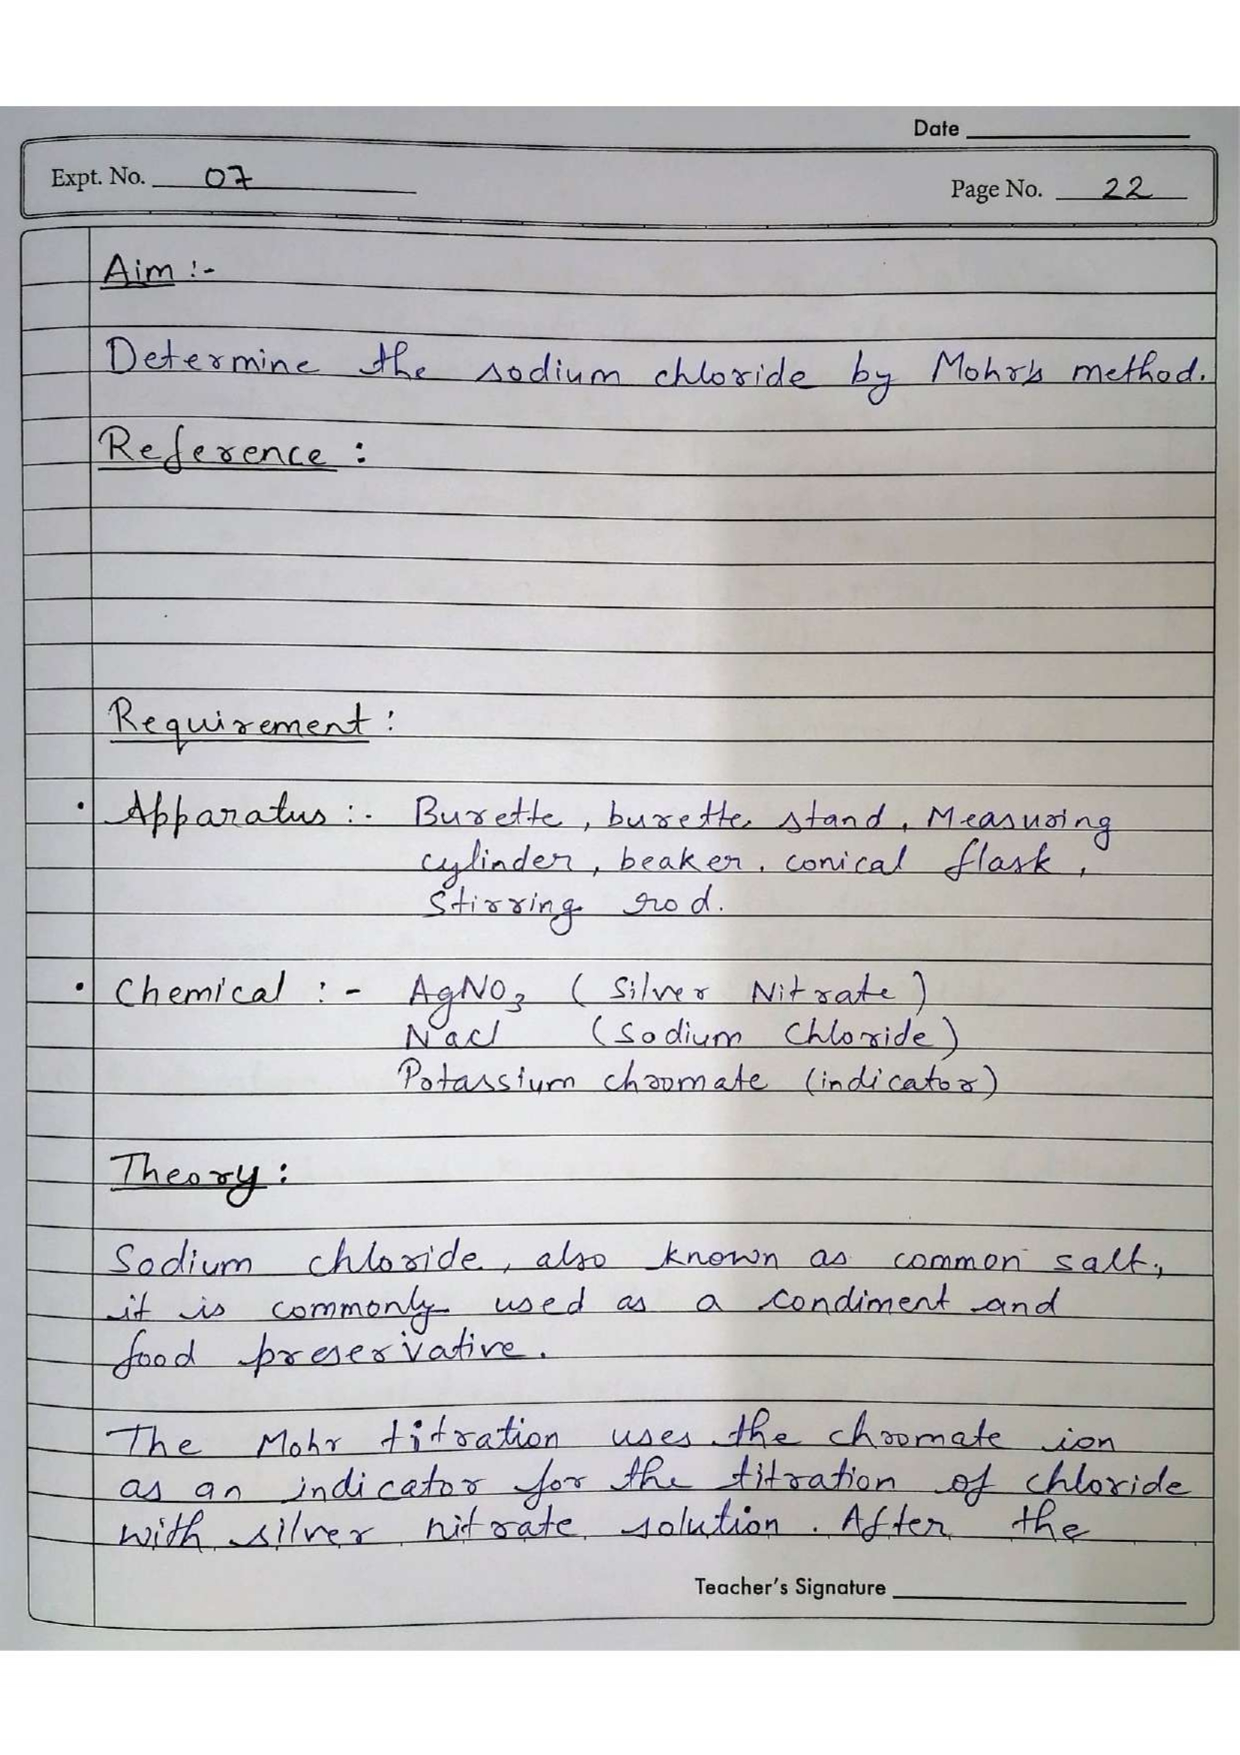 Date
Expt. No. 07
Page No. 22
Aim :-
Determine the sodium chloride by Mohr's method.
Reference :
Requirement :
• Apparatus :- Burette, burette stand, Measuring
cylinder, beaker, conical flask,
Stirring rod.
• Chemical :- AgNO3 (Silver Nitrate)
Nacl (Sodium Chloride)
Potassium chromate (indicator)
Theory :
Sodium chloride, also known as common salt,
it is commonly used as a condiment and
food preservative.
The Mohr titration uses the chromate ion
as an indicator for the titration of chloride
with silver nitrate solution. After the
Teacher's Signature